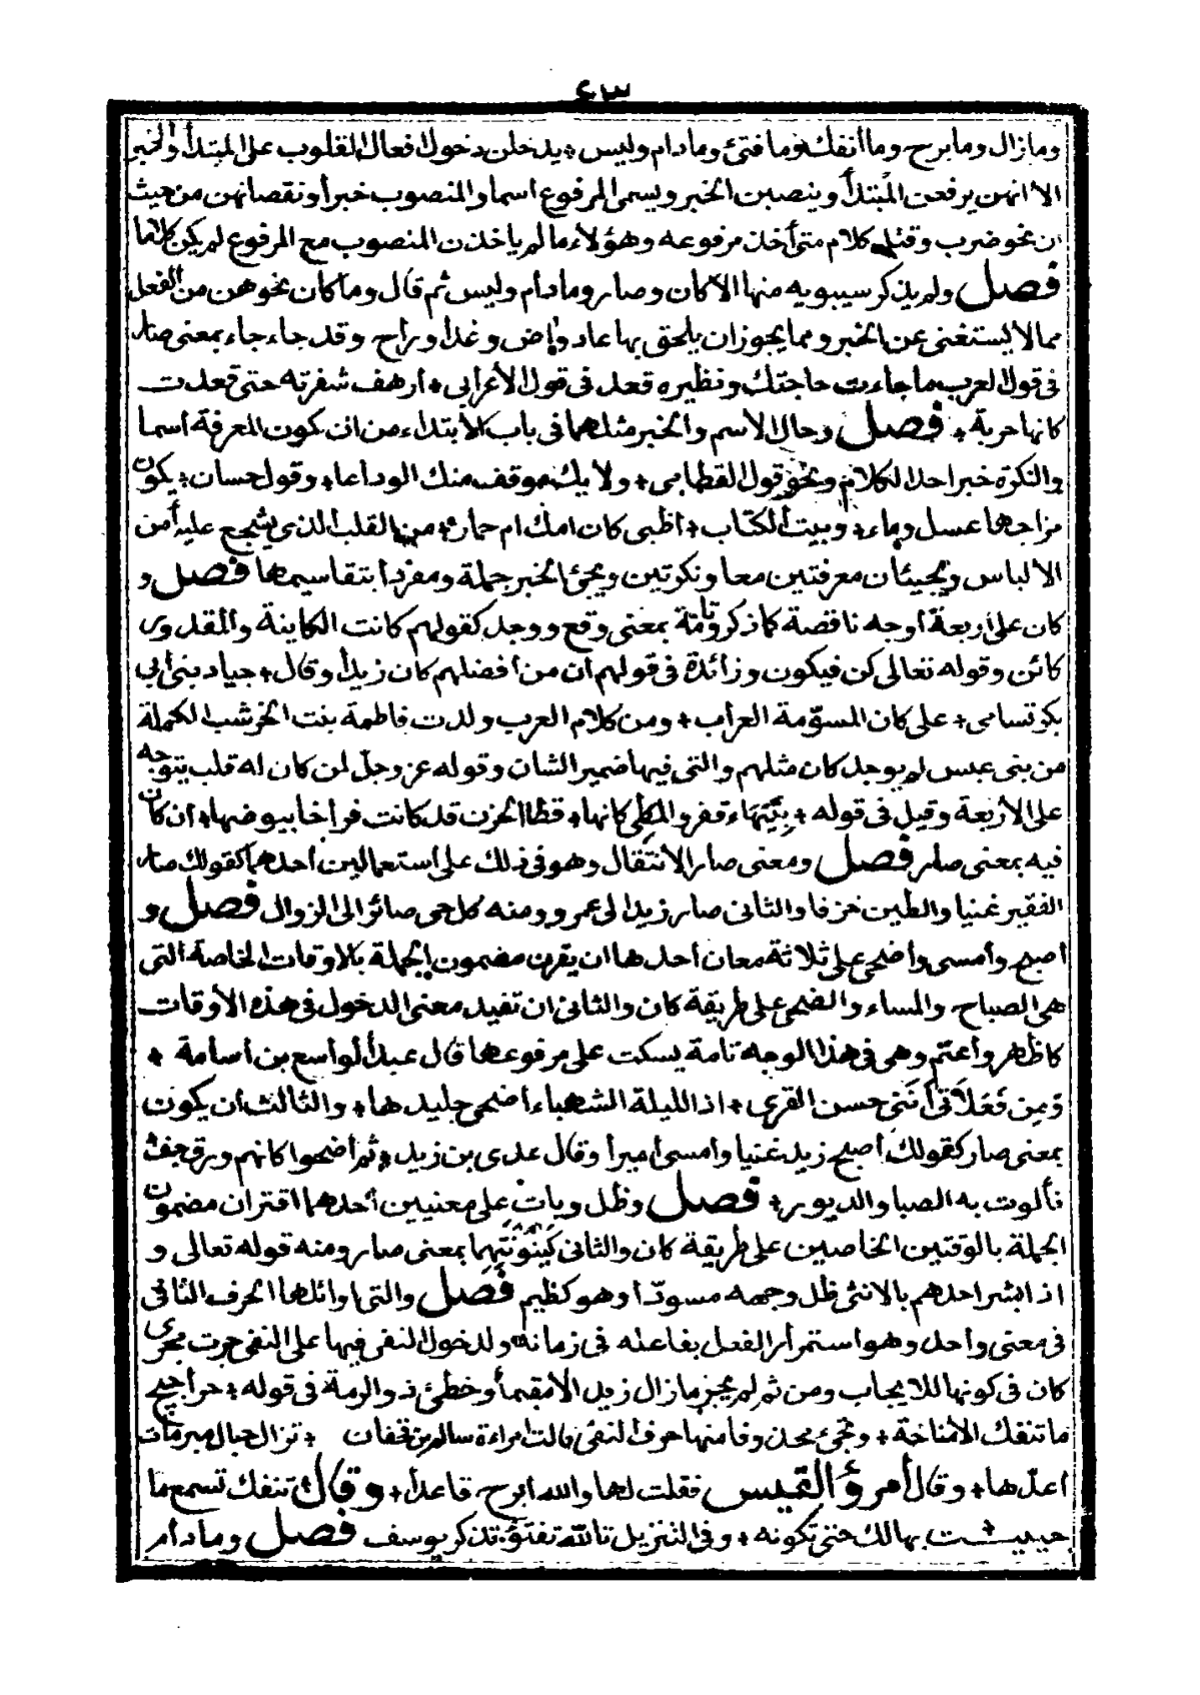 ٤٣
ومازال ومابرح وما أنفك وما فتئ ومادام وليس ٭ يدخلن دخول أفعال القلوب على المبتدأ والخبر
الا انهن يرفعن المبتدأ وينصبن الخبر ويسمى المرفوع اسما والمنصوب خبرا ونقصانهن من حيث
ان نحو ضرب وقتل كلام متى أخذ مرفوعه وهؤلاء ما لم يأخذن المنصوب مع المرفوع لم يكن كلاما
فصل ولم يذكر سيبويه منها الا كان وصار ومادام وليس ثم قال وما كان نحوهن من الفعل
مما لا يستغنى عن الخبر ومما يجوز ان يلحق بها عاد واض وغدا وراح وقد جاء جاء بمعنى صار
فى قول العرب ما جاءت حاجتك ونظيره قعد فى قول الأعرابى ٭ أرهف شفرته حتى قعدت
كانها حربة ٭ فصل وحال الاسم والخبر مثلهما فى باب الابتداء من ان كون المعرفة اسما
والنكرة خبرا حد الكلام ونحو قول القطامى ٭ ولا يك موقف منك الوداعا ٭ وقول حسان ٭ يكون
مزاجها عسل وماء ٭ وبيت الكتاب ٭ اظبى كان امك ام حمار ٭ من القلب الذى يشجع عليه أمن
الالباس ويجيئان معرفتين معا ونكرتين ويجئ الخبر جملة ومفردا بتقاسيمها فصل و
كان على أربعة أوجه ناقصة كما ذكر وتامة بمعنى وقع ووجد كقولهم كانت الكاينة والمقدور
كائن وقوله تعالى كن فيكون وزائدة فى قولهم ان من أفضلهم كان زيدا وقال ٭ جياد بنى أبى
بكر تسامى ٭ على كان المسوّمة العراب ٭ ومن كلام العرب ولدت فاطمة بنت الخرشب الكملة
من بنى عبس لم يوجد كان مثلهم والتى فيها ضمير الشان وقوله عز وجل لمن كان له قلب يتوجه
على الأربعة وقيل فى قوله ٭ بِتَيْهَاء قفر والمطى كانها ٭ قطا الحزن قد كانت فراخا بيوضها ٭ ان كان
فيه بمعنى صار فصل ومعنى صار الانتقال وهو فى ذلك على استعمالين أحدهما كقولك صار
الفقير غنيا والطين خزفا والثانى صار زيد الى عمرو ومنه كل حى صائر الى الزوال فصل و
اصبح وأمسى وأضحى على ثلاثة معان أحدها ان يقرن مضمون الجملة بالاوقات الخاصة التى
هى الصباح والمساء والضحى على طريقة كان والثانى ان تفيد معنى الدخول فى هذه الأوقات
كاظهر وأعتم وهى فى هذا الوجه تامة يسكت على مرفوعها قال عبد الواسع بن أسامة ٭
وَمِن فَعَلَاتى أنّنى حسن القرى ٭ اذ الليلة الشهباء أضحى جليدها ٭ والثالث أن يكون
بمعنى صار كقولك أصبح زيد غنيا وامسى أميرا وقال عدى بن زيد ٭ ثم أضحوا كانهم ورق جف
فألوت به الصبا والدبور ٭ فصل وظل وبات على معنيين أحدهما اقتران مضمون
الجملة بالوقتين الخاصين على طريقة كان والثانى كَيْنُونَتهما بمعنى صار ومنه قوله تعالى و
اذا بشر احدهم بالانثى ظل وجهه مسودّا وهو كظيم فصل والتى اوائلها الحرف النافى
فى معنى واحد وهو استمرار الفعل بفاعله فى زمانه ولدخول النفى فيها على النفى جرت مجرى
كان فى كونها للايجاب ومن ثم لم يجز مازال زيد الا مقيما وخطئ ذو الرمة فى قوله ٭ حراجيج
ما تنفك الا مناخة ٭ وتجئ محذوفا منها حرف النفى قالت امراءة سالم بن قحفان ٭ تزال حبال مبرمات
اعدّها ٭ وقال أمرؤ القيس فقلت لها والله ابرح قاعدا ٭ وقال تنفك تسمع ما
حييت بهالك حتى تكونه ٭ وفى التنزيل تالله تفتؤ تذكر يوسف فصل ومادام